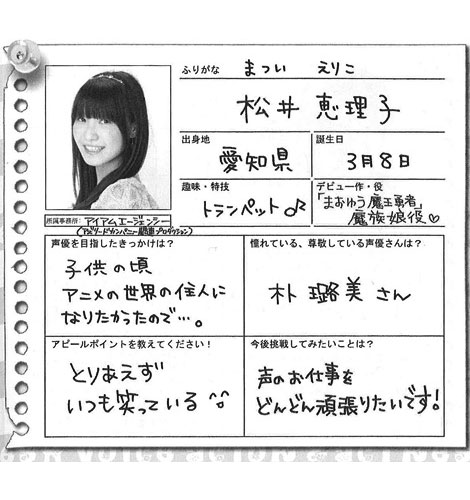 ふりがな まつい えりこ
松井 恵理子
出身地
愛知県
誕生日
3月8日
趣味・特技
トランペット♪
デビュー作・役
「まおゆう魔王勇者」
魔族娘役♡
所属事務所: アイアムエージェンシー
声優を目指したきっかけは?
子供の頃
アニメの世界の住人に
なりたかったので…。
憧れている、尊敬している声優さんは?
朴 璐美 さん
アピールポイントを教えてください!
とりあえず
いつも笑っている ^^
今後挑戦してみたいことは?
声のお仕事を
どんどん頑張りたいです!